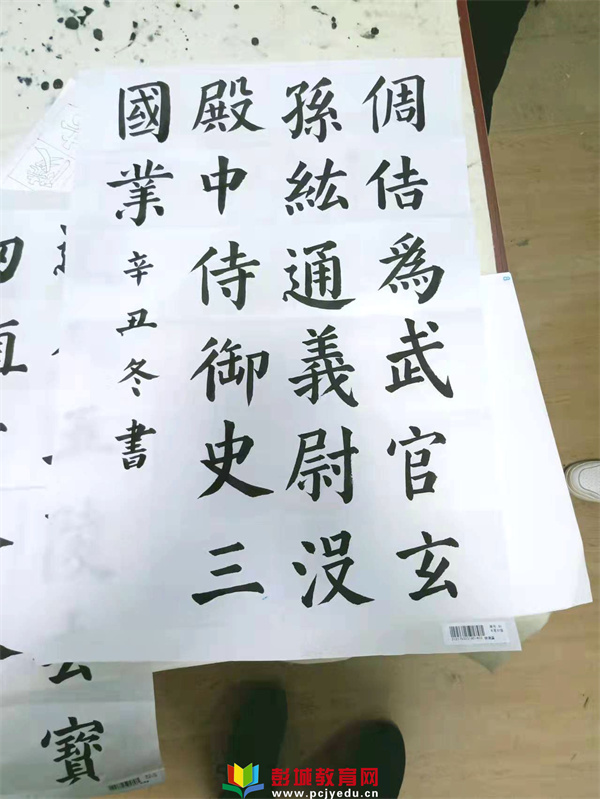 倜佶為武官玄
孫紘通義尉没
殿中侍御史三
國業辛丑冬書
寶
彭城教育网
www.pcjyedu.cn